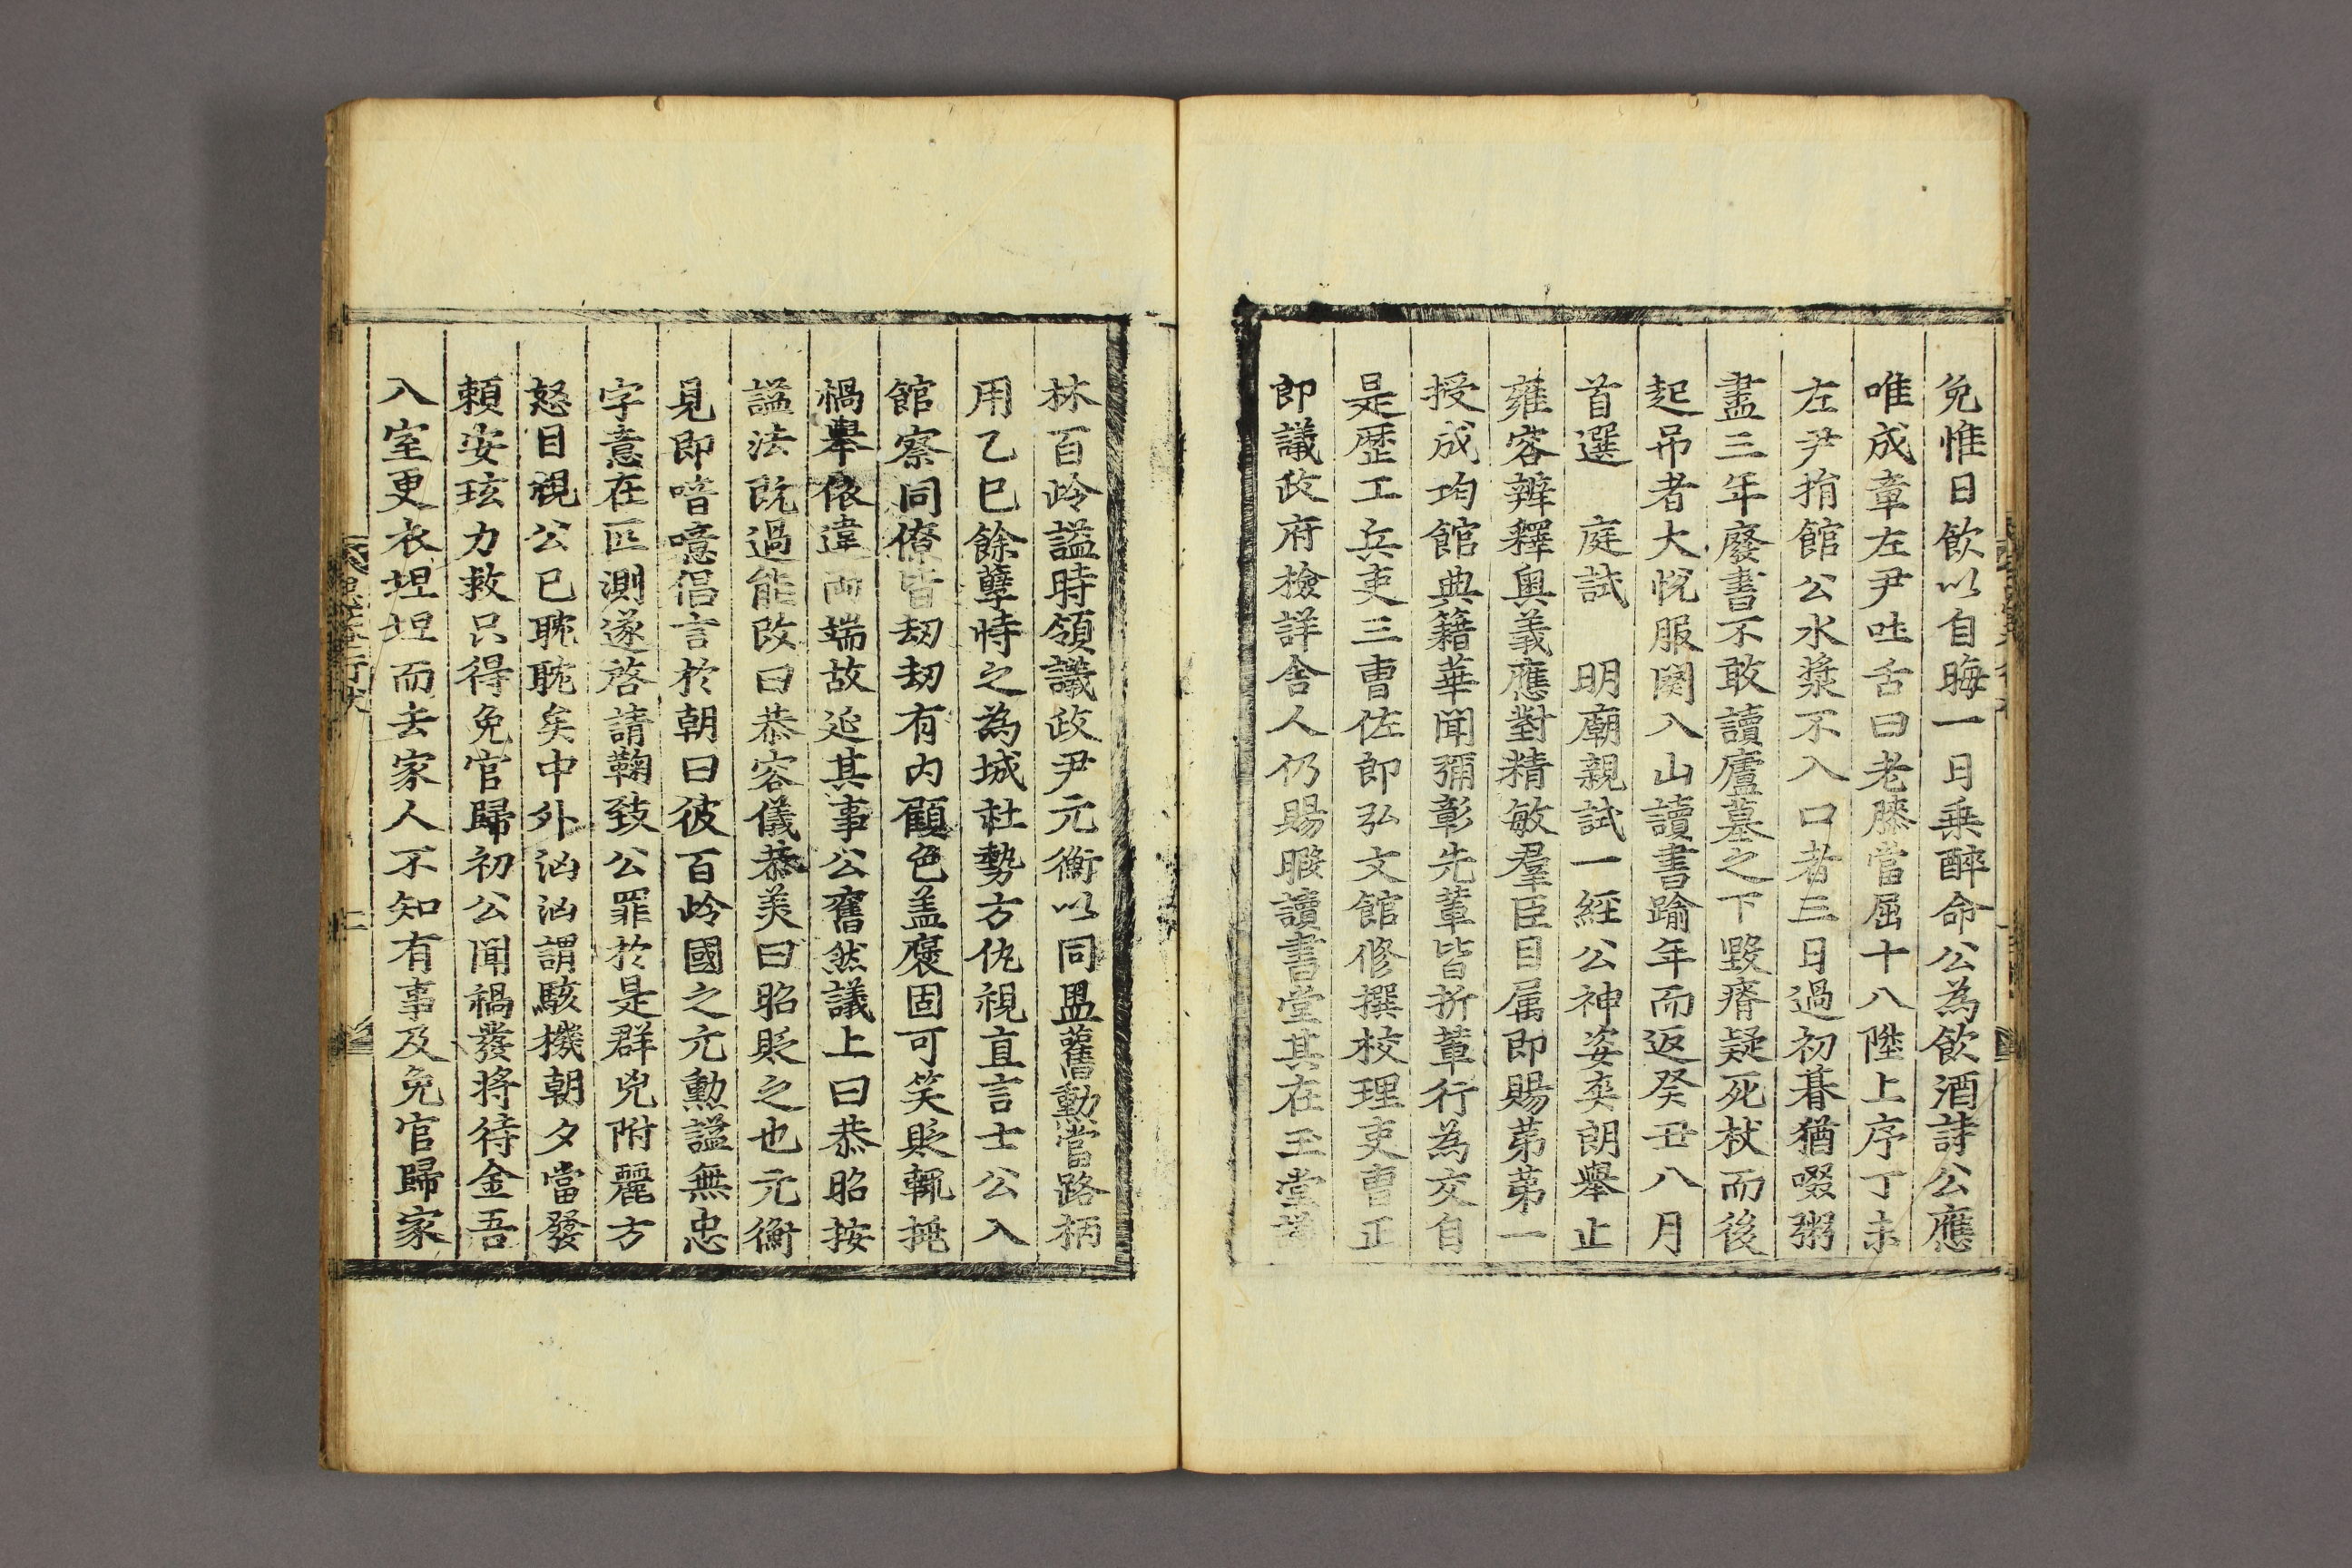 免惟日飮以自晦一日乗醉命公為飮酒詩公應
唯成章左尹吐舌曰老膝當屈十八陞上序丁未
左尹捐館公水漿不入口者三日過初朞猶啜粥
盡三年廢書不敢讀廬墓之下毀瘠疑死杖而後
起吊者大悅服闋入山讀書踰年而返癸丑八月
首選 庭試 明廟親試一經公神姿英朗舉止
雍容辨釋奥義應對精敏羣臣目属即賜第第一
授成均館典籍華聞彌彰先輩皆折輩行為交自
是歷工兵吏三曹佐郎弘文館修撰校理吏曹正
郎議政府檢詳舍人仍賜暇讀書堂其在玉堂議
林百岭謚時領議政尹元衡以同盟舊勳當路柄
用乙巳餘孽恃之為城社勢方仇視直言士公入
館察同僚皆刼刼有内顧色盖褒固可笑貶輒挻
禍舉依違兩端故延其事公奮然議上曰恭昭按
謚法旣過能改曰恭容儀恭美曰昭貶之也元衡
見即喑噫倡言於朝曰彼百岭國之元勳謚無忠
字意在叵測遂啓請鞫致公罪於是群兇附麗方
怒目視公已耽耽矣中外汹汹謂駭機朝夕當發
頼安玹力救只得免官歸初公聞禍發將待金吾
入室更衣坦坦而去家人不知有事及免官歸家